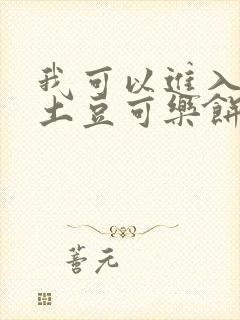 我可以進入
土豆可樂餅
善元